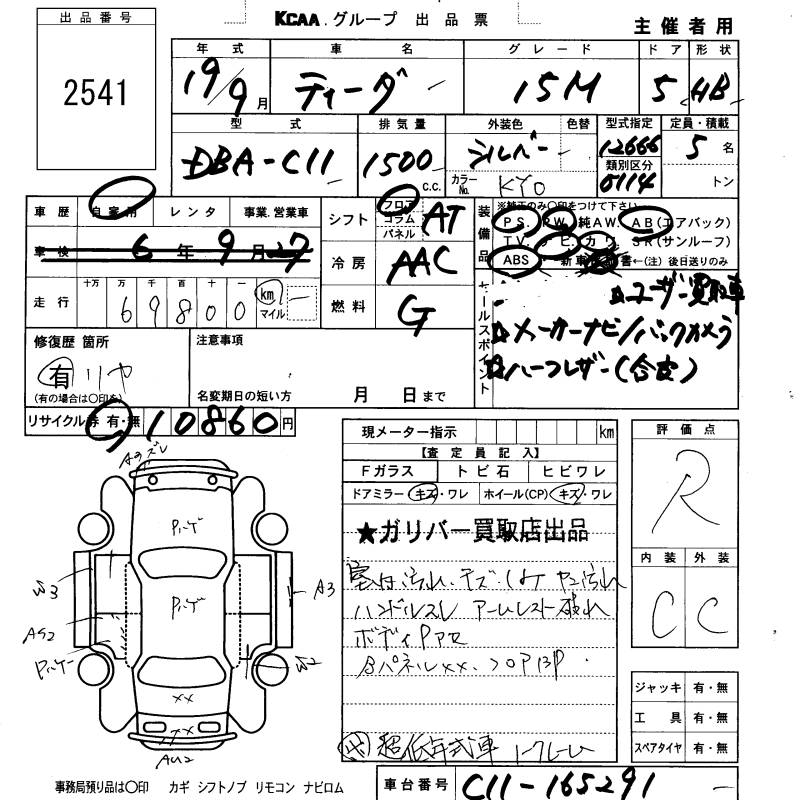 KCAA グループ 出品票
主催者用
出品番号
2541
年式 車名 グレード ドア 形状
19/9月 ティーダ 15M 5 HB
型式 排気量 外装色 色替 型式指定 定員・積載
DBA-C11 1500c.c. シルバー 12666 5名
カラーNo. KY0 類別区分 0114 トン
車歴 自家用 レンタ 事業.営業車
車検 6年9月27
走行 十万 万 千 百 十 一 69800 km マイル
シフト フロア コラム パネル AT
冷房 AAC
燃料 G
装備品 ※純正のみ〇印をつけて下さい
PS. PW. 純AW. AB(エアバック)
TV. ナビ. カワ. SR(サンルーフ)
ABS 新車保証書←(注)後日送りのみ
セールスポイント
☆ユーザー買取車
☆メーカーナビ/バックカメラ
☆ハーフレザー(合皮)
修復歴 箇所
有 リヤ
(有の場合は〇印を)
注意事項
名変期日の短い方 月 日まで
リサイクル券 有・無 10860円
現メーター指示 km
【査定員記入】
Fガラス トビ石 ヒビワレ
ドアミラー キズ・ワレ ホイール(CP) キズ・ワレ
★ガリバー買取店出品
室内汚れ.キズ.コゲ ヤニ汚れ
ハンドルスレ アームレスト破れ
ボディPムラ
BパネルXX. フロアロP
超低年式車
評価点
R
内装 外装
C C
ジャッキ 有・無
工具 有・無
スペアタイヤ 有・無
Aョズレ
Pハゲ
Pハゲ
W3
AS2
Pハゲ
A3
W2
XX
XX
AU2
事務局預り品は〇印 カギ シフトノブ リモコン ナビロム
車台番号 C11-165291